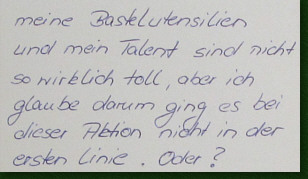 meine Bastelutensilien
und mein Talent sind nicht
so wirklich toll, aber ich
glaube darum ging es bei
dieser Aktion nicht in der
ersten Linie. Oder?